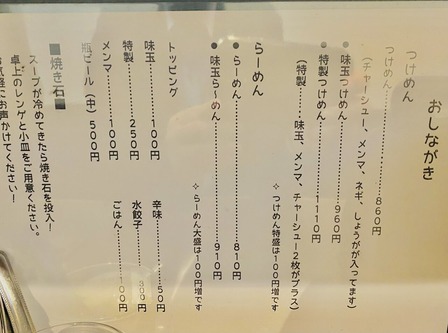 おしながき
つけめん
つけめん……………860円
(チャーシュー、メンマ、ネギ、しょうがが入ってます)
●味玉つけめん……………960円
●特製つけめん……………1110円
(特製……味玉、メンマ、チャーシュー2枚がプラス)
☆つけめん特盛は100円増です
らーめん
●らーめん……………810円
●味玉らーめん……………910円
☆らーめん大盛は100円増です
トッピング
味玉…………100円
特製…………250円
メンマ…………100円
瓶ビール(中)500円
辛味…………50円
水餃子…………300円
ごはん…………100円
■焼き石■
スープが冷めてきたら焼き石を投入!
卓上のレンゲと小皿をご用意ください。
お気軽にお声かけてください!